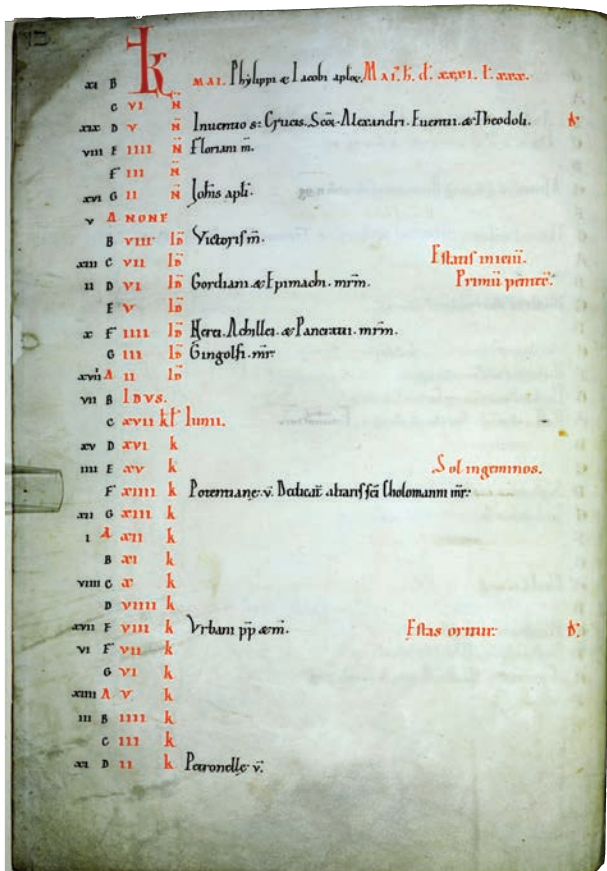 xi B KL MAI. Phylippi & Iacobi aploꝝ. MAI. h̄. d̄. xxxi. l̄. xxx.
C VI N̄
xix D V N̄ Inuentio s̄. Crucis. Scōꝝ. Alexandri. Euentii. & Theodoli. D̄.
viii E IIII N̄ Floriani m̄.
F III N̄
xvi G II N̄ Iohis apłi.
v A NONE
B VIII ID̄ Victoris m̄.
xiii C VII ID̄ Estatis initiū.
ii D VI ID̄ Gordiani & Epimachi. mrm̄. Primū pentec̄.
E V ID̄
x F IIII ID̄ Nerei. Achillei. & Pancratii. mrm̄.
G III ID̄ Gingolfi. mr̄.
xvii A II ID̄
vii B IDVS.
C XVII kł Iunii.
xv D XVI k
iiii E XV k Sol in geminos.
F XIIII k Potentiane. v̄. Dedicatī altaris sc̄i Cholomanni mr̄.
xii G XIII k
i A XII k
B XI k
viiii C X k
D VIIII k
xvii E VIII k Vrbani pp̄ & m̄. Estas oritur. D̄.
vi F VII k
G VI k
xiiii A V k
iii B IIII k
C III k
xi D II k Petronellę v̄.